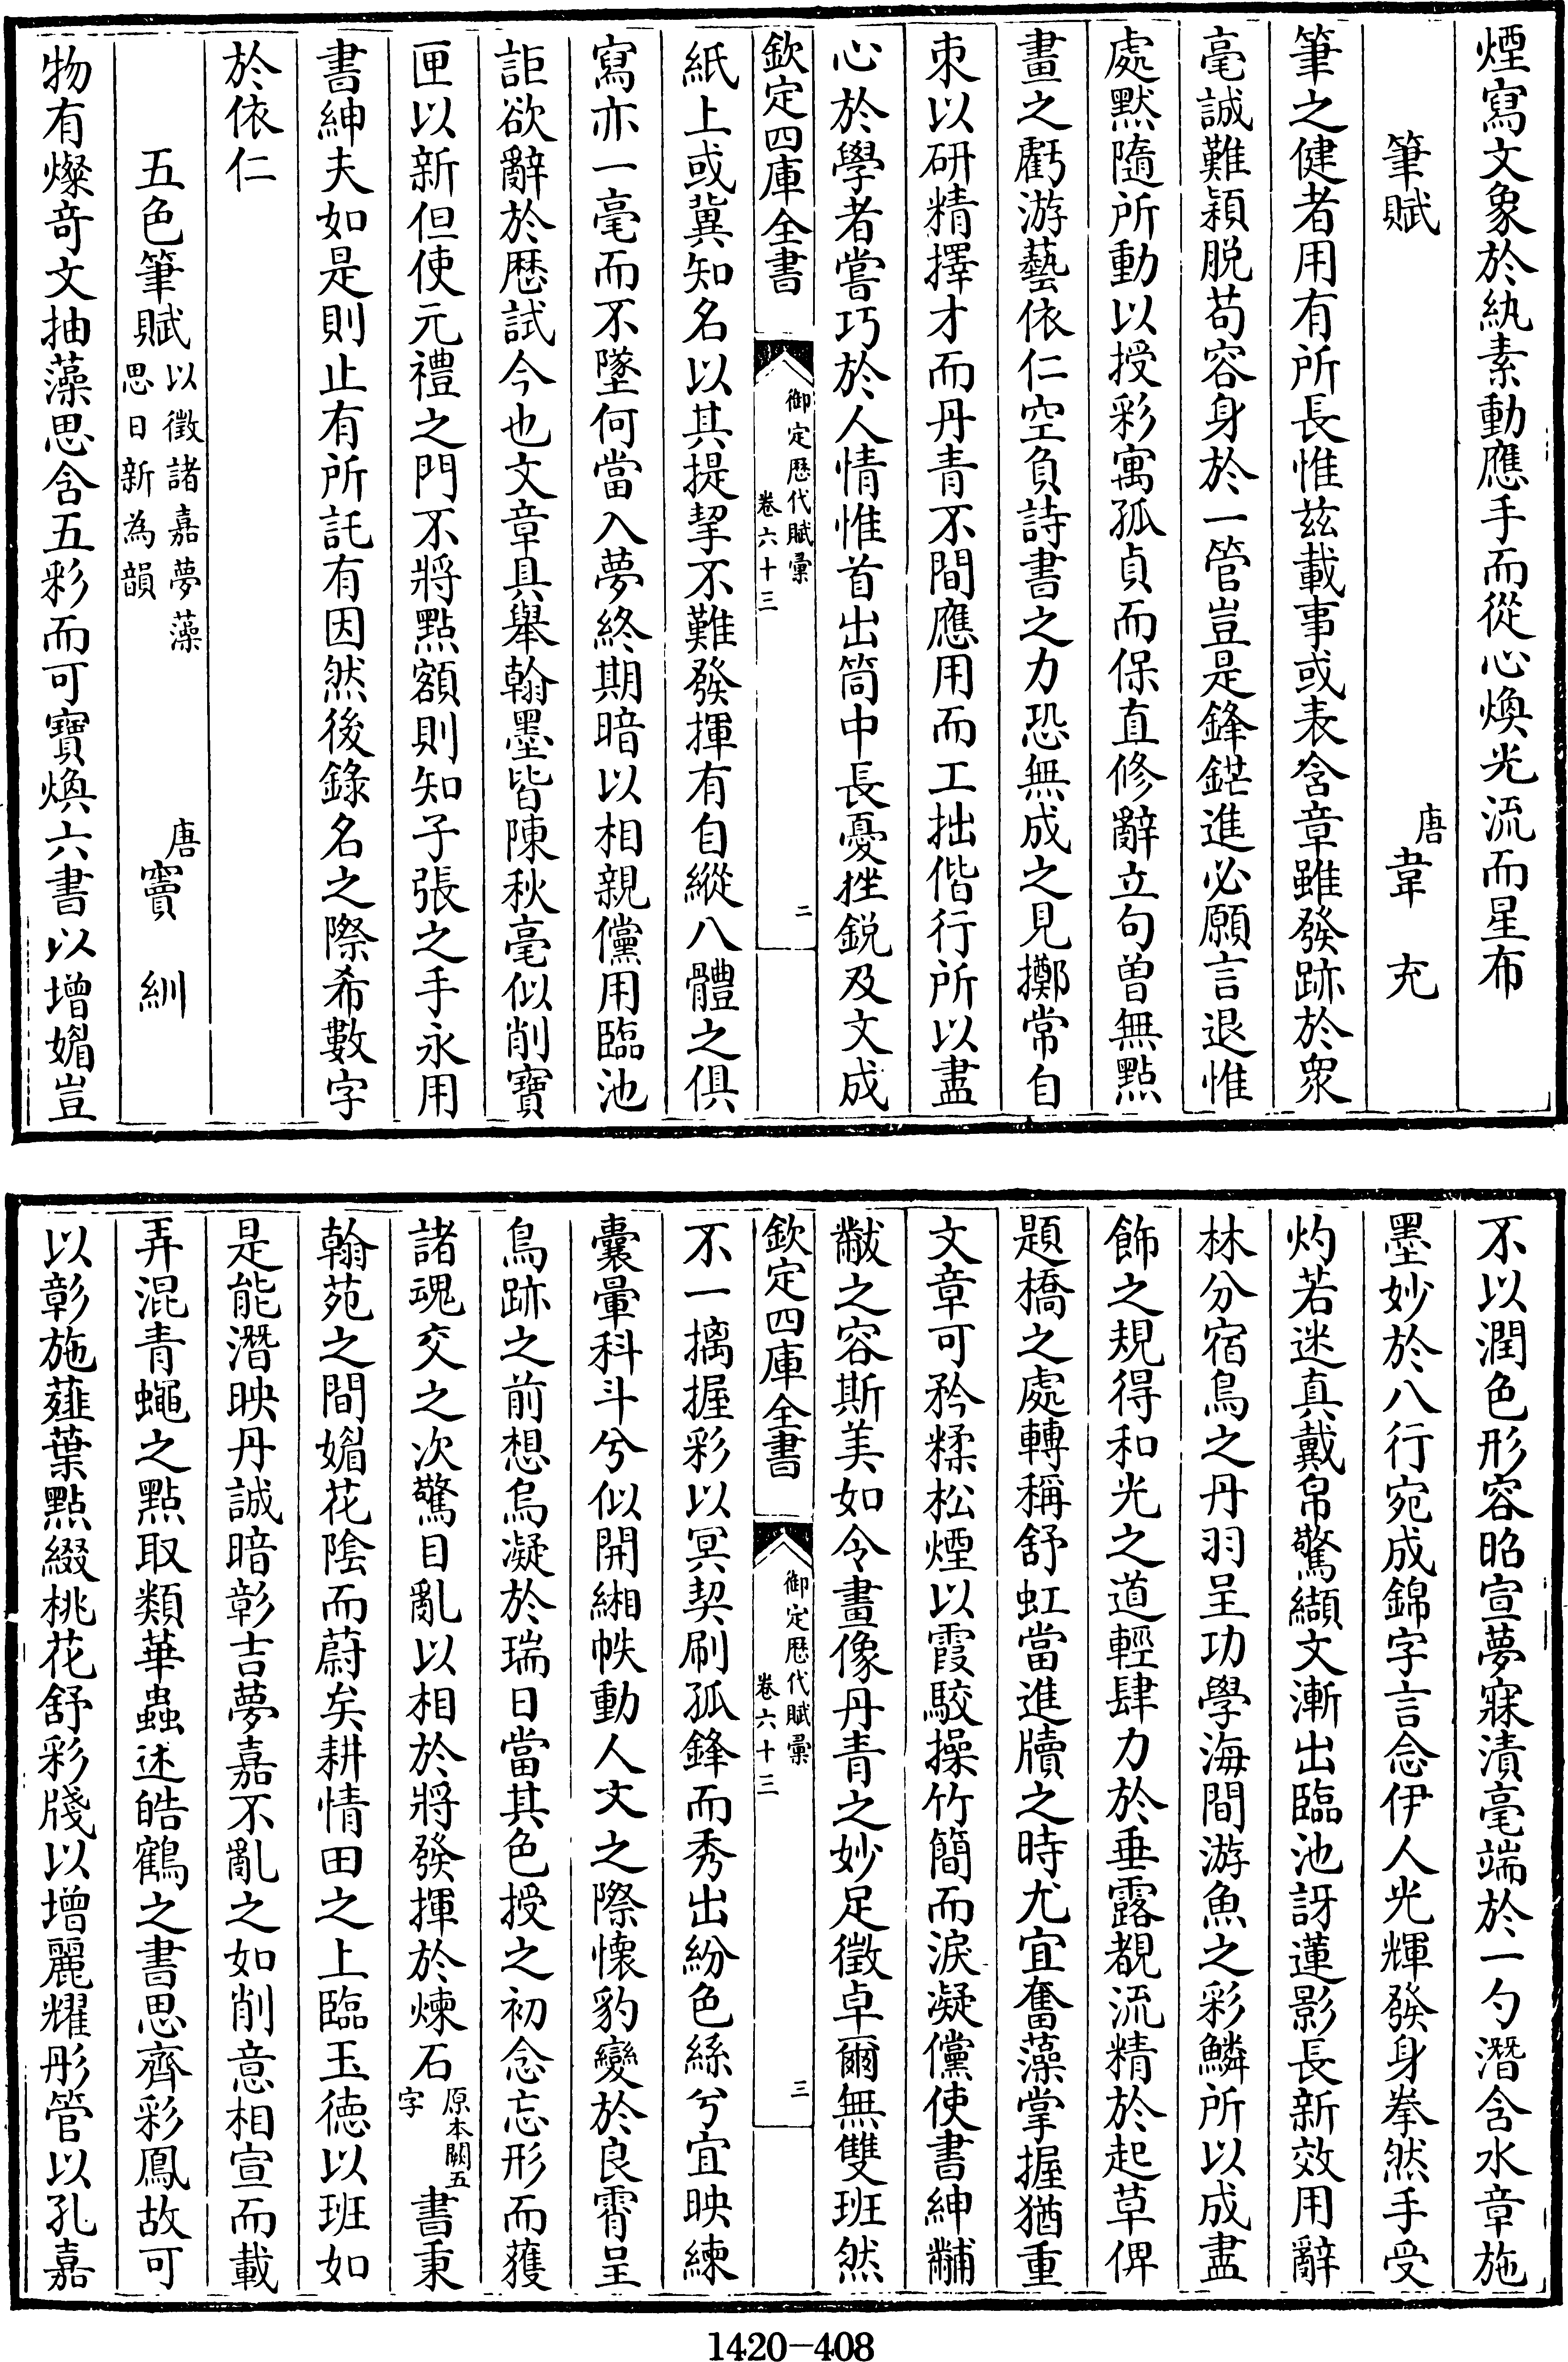 煙寫文象於紈素動應手而從心煥光流而星布
筆賦
唐
韋充
筆之健者用有所長惟茲載事或表含章雖發跡於衆
毫誠難穎脱苟容身於一管豈是鋒鋩進必願言退惟
處黙隨所動以授彩寓孤貞而保直修辭立句曽無點
畫之虧游藝依仁空負詩書之力恐無成之見擲常自
束以研精擇才而丹青不間應用而工拙偕行所以盡
心於學者嘗巧於人情惟首出筒中長憂挫鋭及文成
欽定四庫全書
御定歴代賦彙
卷六十三
二
紙上或冀知名以其提挈不難發揮有自縱八體之俱
寫亦一毫而不墜何當入夢終期暗以相親儻用臨池
詎欲辭於歴試今也文章具舉翰墨皆陳秋毫似削寶
匣以新但使元禮之門不將點額則知子張之手永用
書紳夫如是則止有所託有因然後錄名之際希數字
於依仁
五色筆賦
以徵諸嘉夢藻
思日新為韻
唐
竇紃
物有燦奇文抽藻思含五彩而可寶煥六書以增媚豈
不以潤色形容昭宣夢寐漬毫端於一勺潛含水章施
墨妙於八行宛成錦字言念伊人光輝發身拳然手受
灼若迷真戴帛驚纈文漸出臨池訝蓮影長新效用辭
林分宿鳥之丹羽呈功學海間游魚之彩鱗所以成盡
飾之規得和光之道輕肆力於垂露覩流精於起草俾
題橋之處轉稱舒虹當進牘之時尤宜奮藻掌握猶重
文章可矜糅松煙以霞駮操竹簡而淚凝儻使書紳黼
黻之容斯美如令畫像丹青之妙足徵卓爾無雙班然
欽定四庫全書
御定歴代賦彙
卷六十三
三
不一摛握彩以冥契刷孤鋒而秀出紛色絲兮宜映練
囊暈科斗兮似開緗帙動人文之際懷豹變於良霄呈
鳥跡之前想烏凝於瑞日當其色授之初念忘形而獲
諸魂交之次驚目亂以相於將發揮於煉石
原本闕五
字
書秉
翰苑之間媚花陰而蔚矣耕情田之上臨玉徳以班如
是能潛映丹誠暗彰吉夢嘉不亂之如削意相宣而載
弄混青蠅之點取類華蟲述皓鶴之書思齊彩鳳故可
以彰施薤葉點綴桃花舒彩牋以增麗耀彤管以孔嘉
1420-408